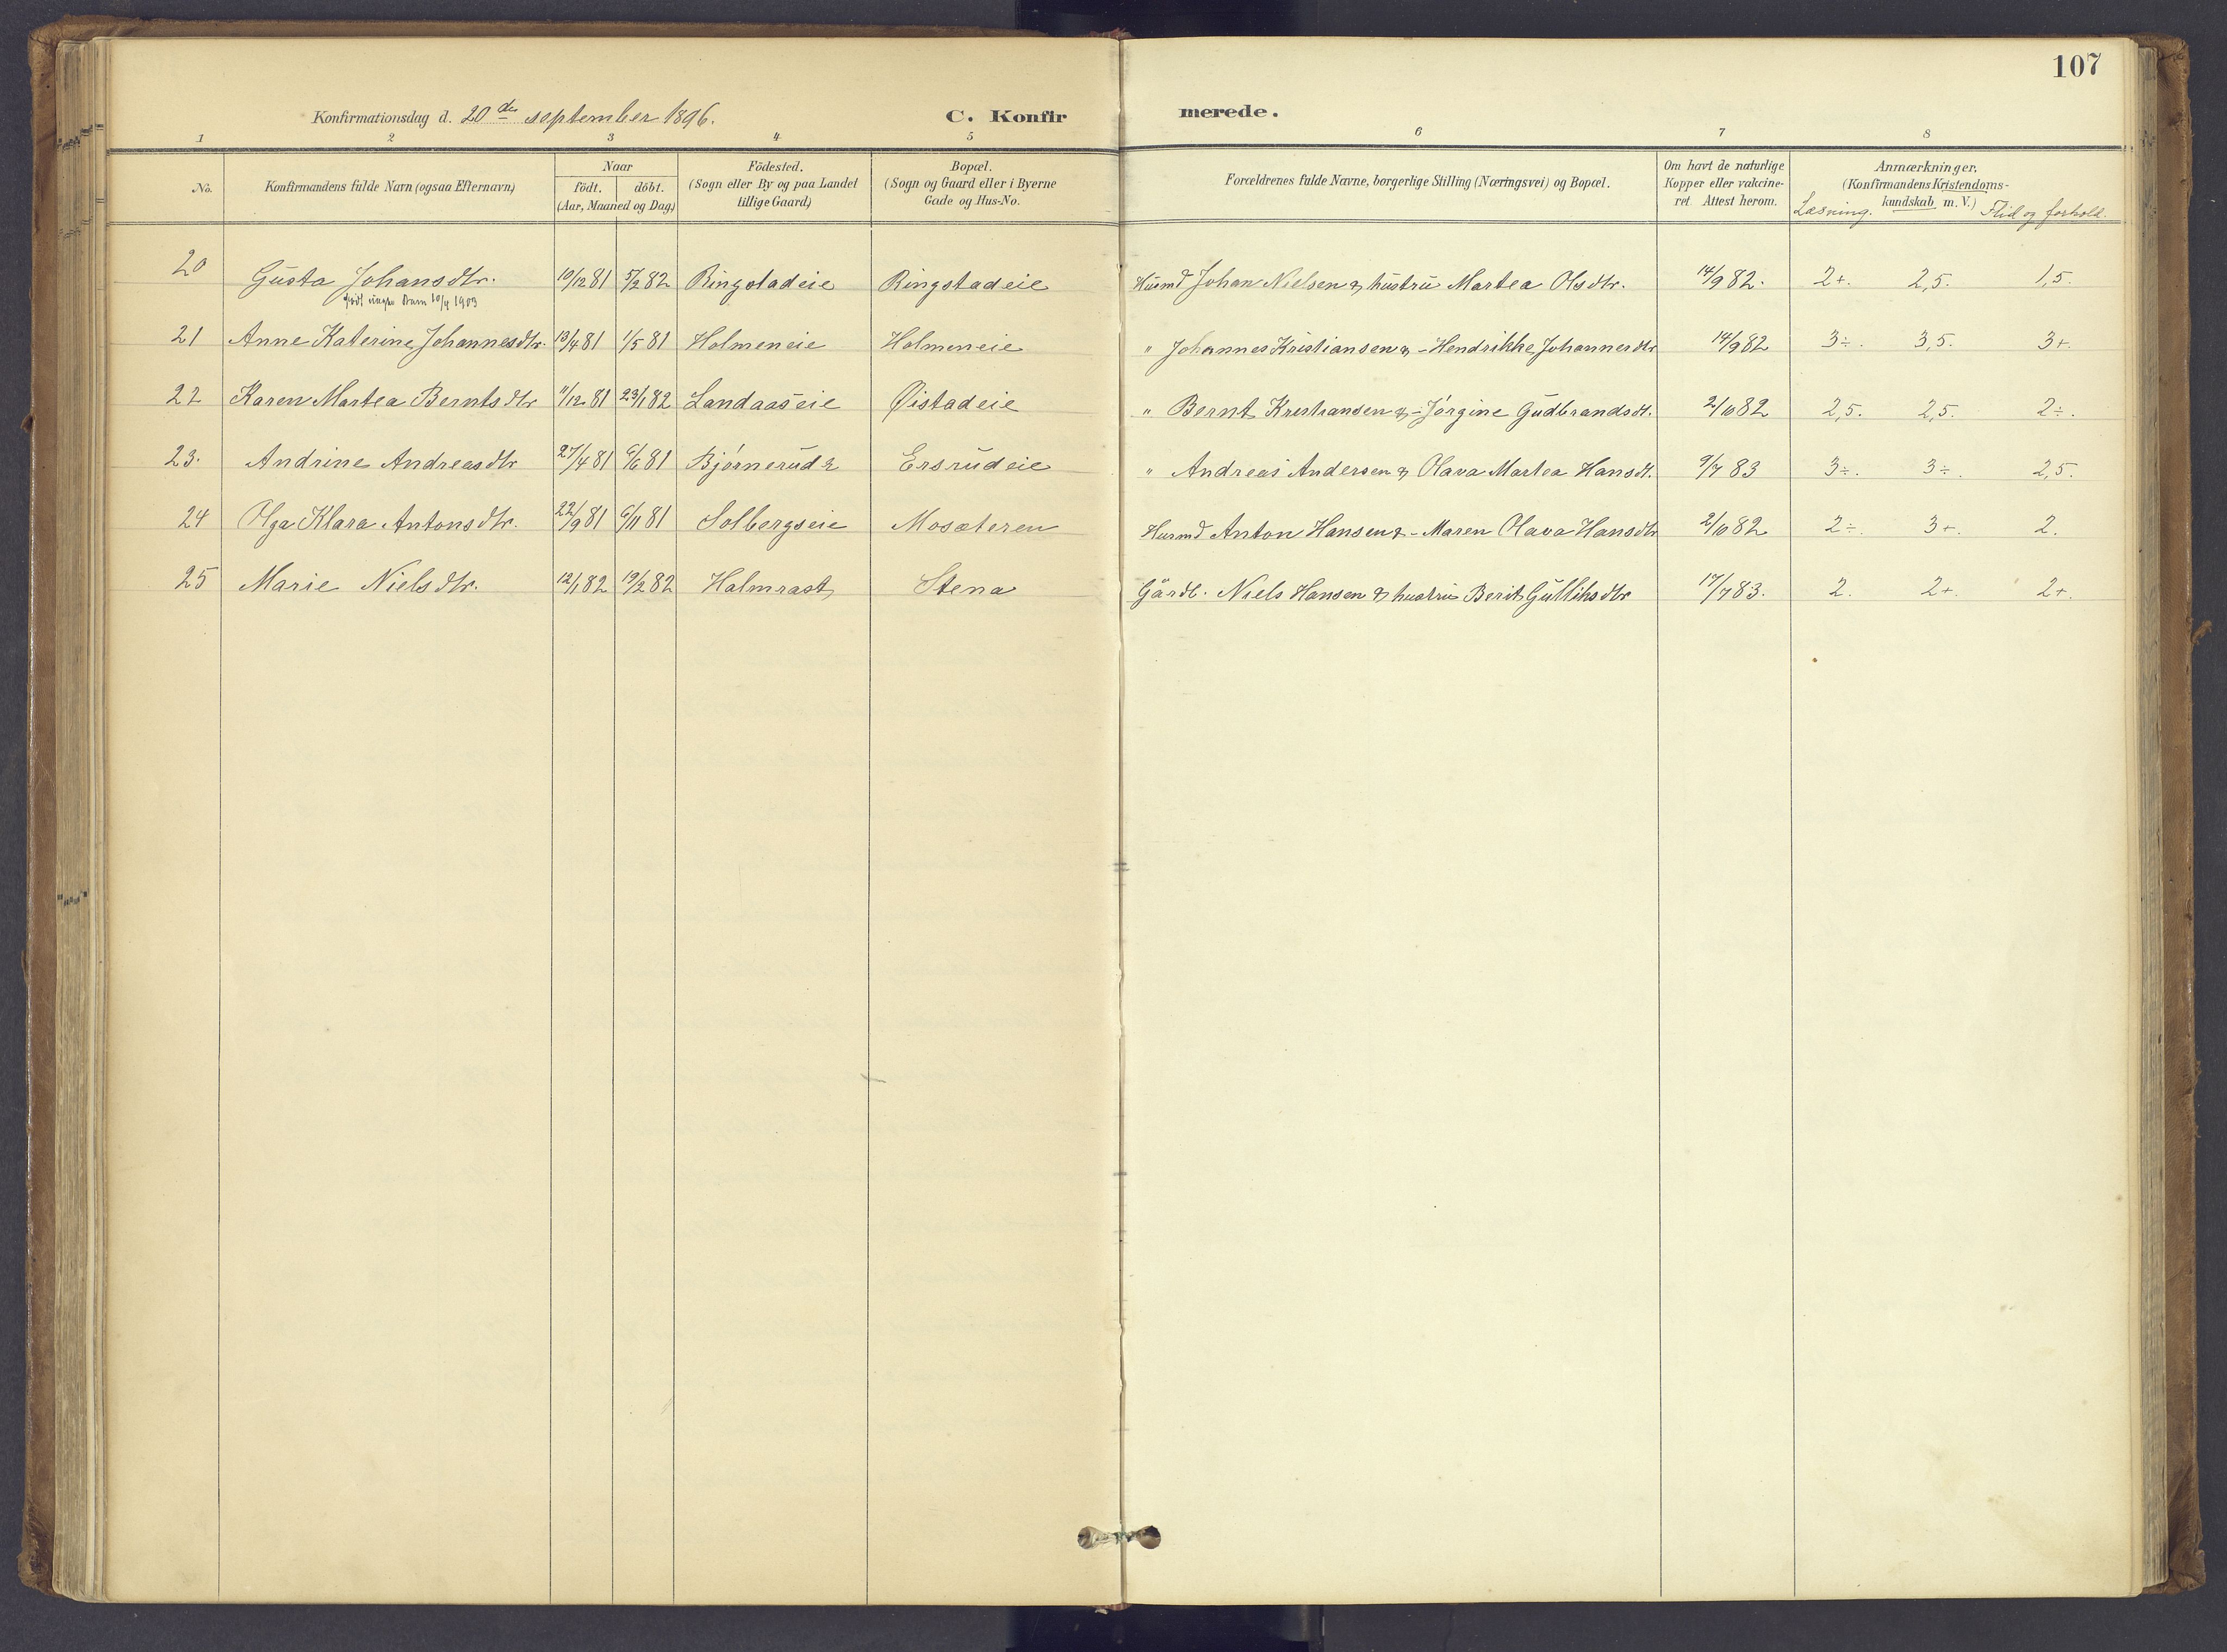 107
Konfirmationsdag d. 20de september 1896.
C. Konfirmerede.
1 2 3 4 5 6 7 8
No.
Konfirmandens fulde Navn (ogsaa Efternavn)
Naar
födt. döbt.
(Aar, Maaned og Dag)
Födested.
(Sogn eller By og paa Landet
tillige Gaard)
Bopæl.
(Sogn og Gaard eller i Byerne
Gade og Hus-No.
Forældrenes fulde Navne, borgerlige Stilling (Næringsvei) og Bopæl.
Om havt de naturlige
Kopper eller vakcine-
ret. Attest herom.
Anmærkninger.
(Konfirmandens Kristendoms-
kundskab m. V.)
Læsning. Flid og forhold.
20 Gusta Johansdtr. 10/12 81 5/2 82 Ringstadeie Ringstadeie Husmd Johan Nielsen & hustru Martea Olsdtr. 14/9 82. 2+. 2,5. 1,5.
født uægte Barn 10/4 1903
21 Anne Katerine Johannesdtr. 13/4 81 1/5 81 Holmeneie Holmeneie " Johannes Kristiansen & - Hendrikke Johannesdtr 14/9 82 3÷. 3,5. 3+.
22 Karen Martea Berntsdtr 11/12 81 23/1 82 Landaaseie Øistadeie " Bernt Kristiansen & - Jørgine Gudbrandsdt. 2/10 82 2,5. 2,5. 2÷.
23. Andrine Andreasdtr 27/4 81 6/6 81 Bjørnerud Ersrudeie " Andreas Andersen & Olava Martea Hansdt. 9/7 83 3÷. 3÷. 2,5.
24 Olga Klara Antonsdtr. 22/9 81 6/11 81 Solbergseie Mosæteren Husmd Anton Hansen & - Maren Olava Hansdtr 2/10 82 2÷. 3+. 2.
25 Marie Nielsdtr. 12/1 82 19/2 82 Halmrast Stena Gårdb. Niels Hansen & hustru Berit Gulliksdtr 17/7 83. 2. 2+. 2+.